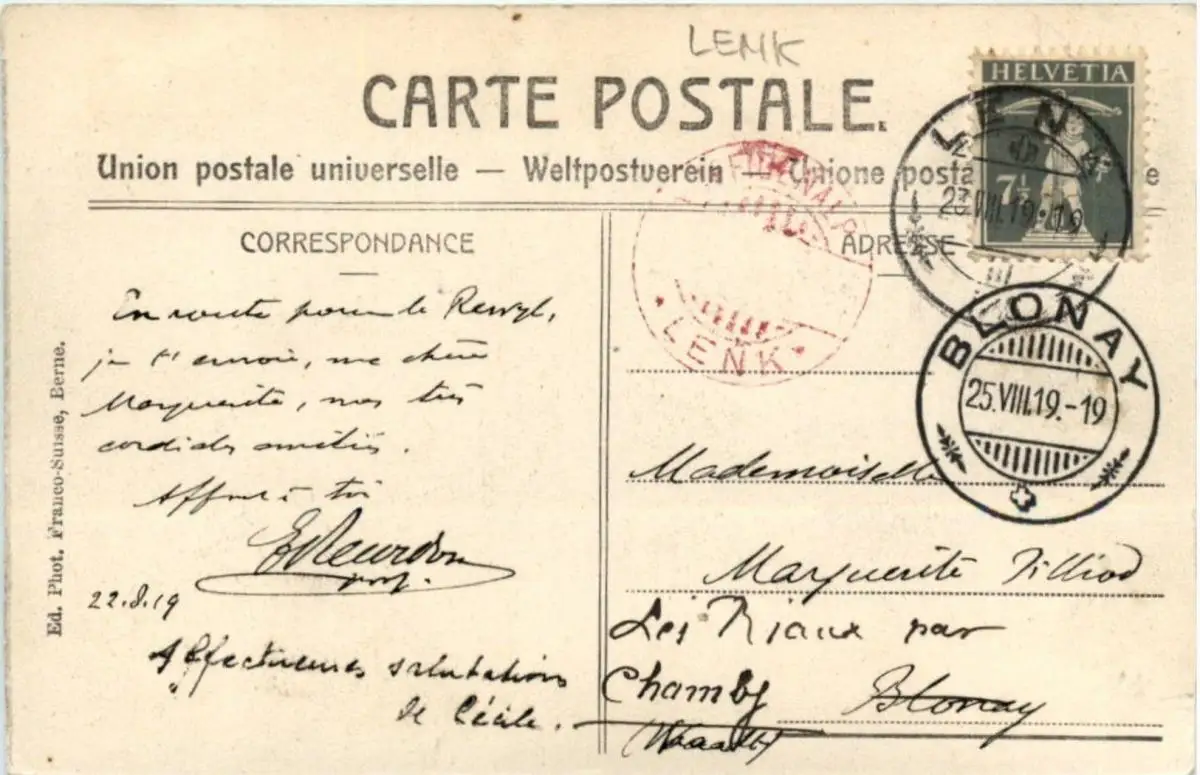 LENK
CARTE POSTALE.
Union postale universelle — Weltpostverein — Unione posta e
HELVETIA
7½
LENK
23.VIII.19.-19
LENK
CORRESPONDANCE
ADRESSE
BLONAY
25.VIII.19.-19
En route pour le Rawyl,
je t'envoie, ma chère
Marguerite, mes très
cordiales amitiés.
à toi
prof.
22.8.19
Affectueuses salutations
de Cécile.
Mademoiselle
Marguerite Tilliod
Les Riaux par
Chamby Blonay
(Vaud)
Ed. Phot. Franco-Suisse, Berne.